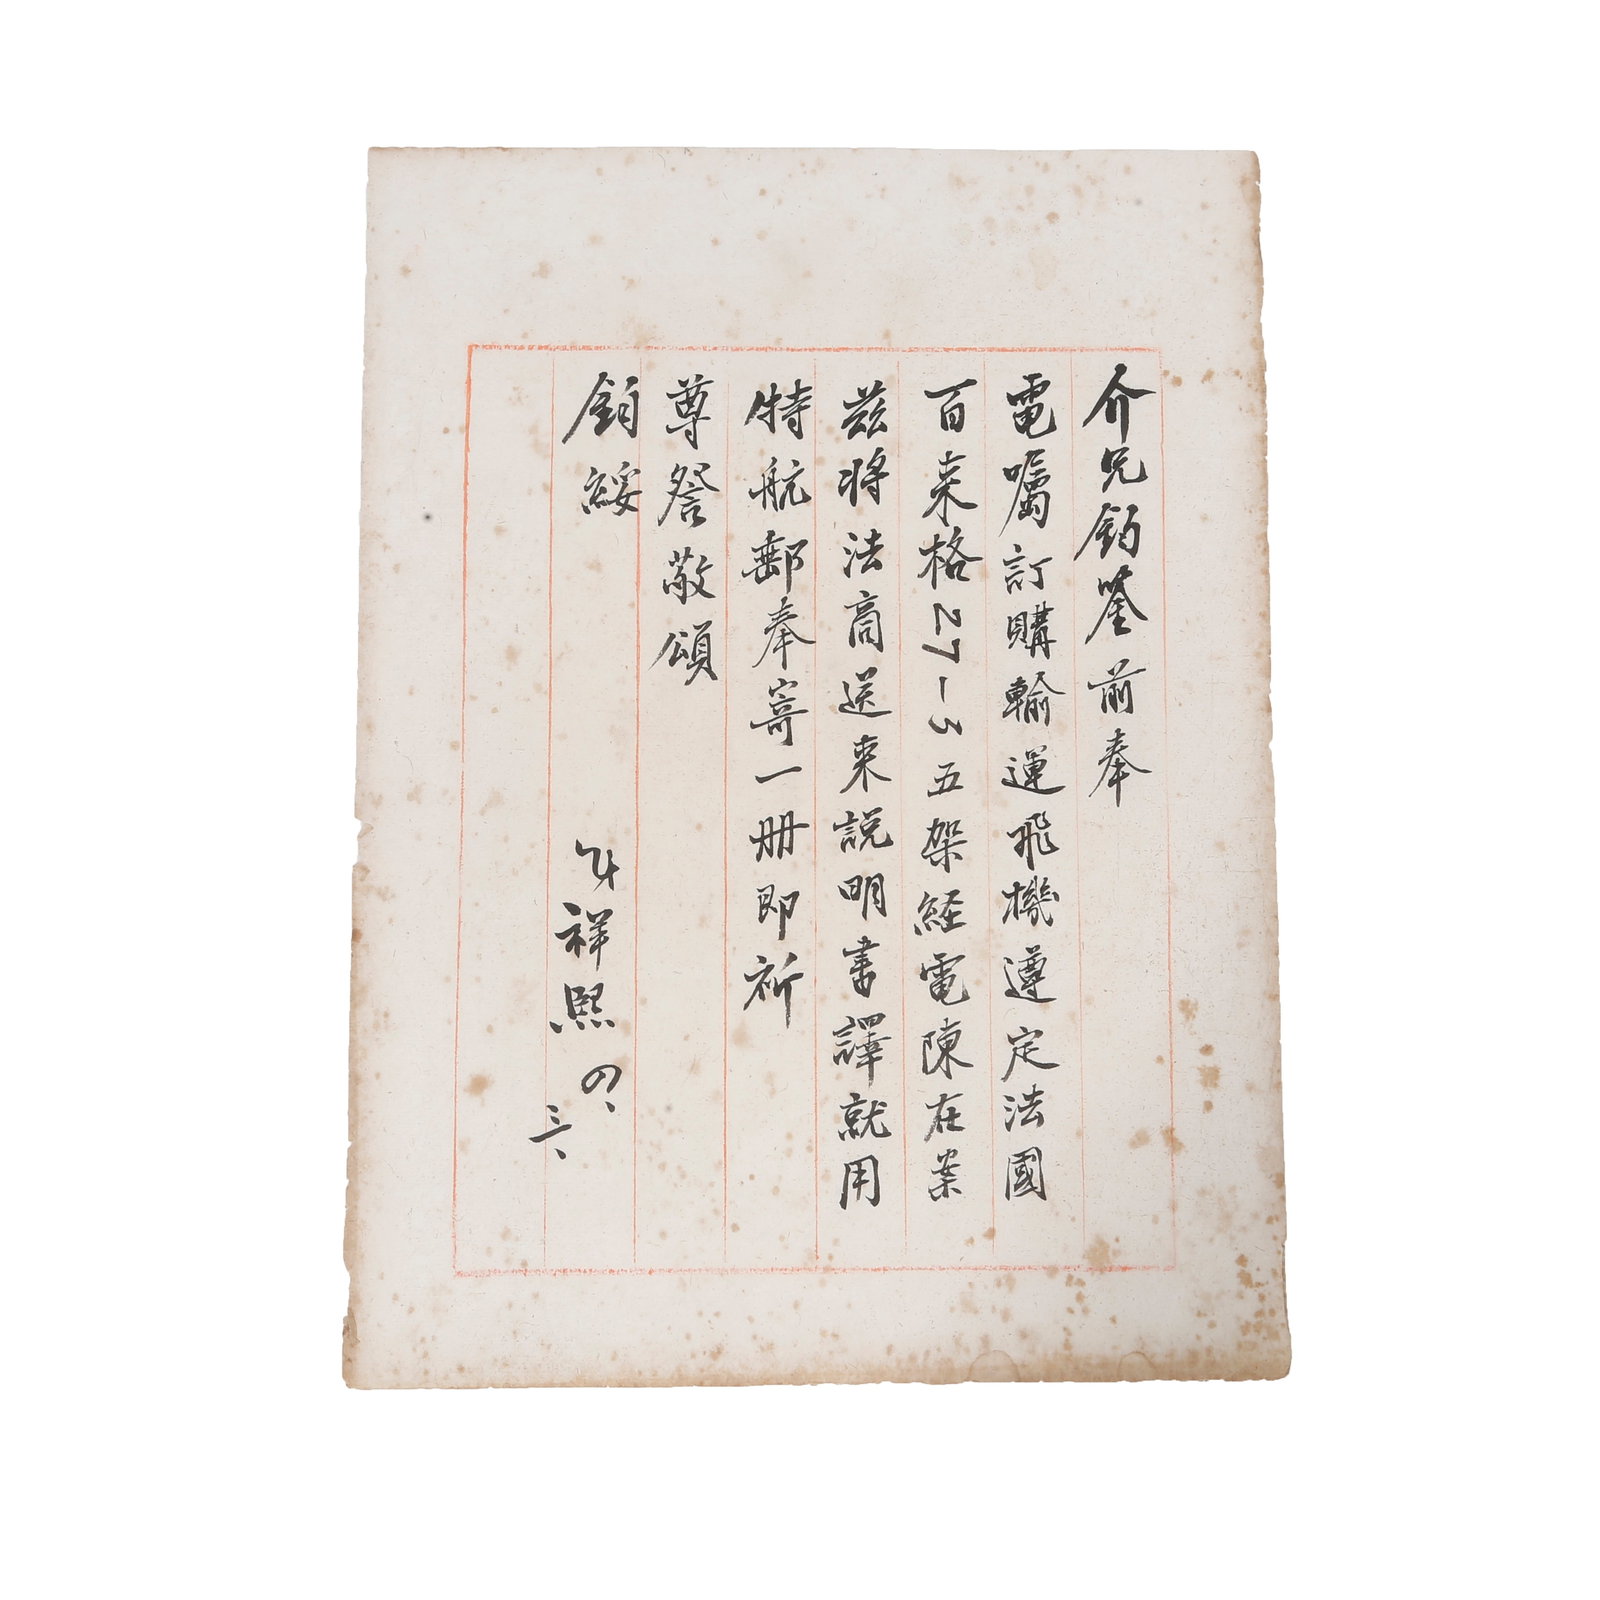 介兄鈞鑒前奉
電囑訂購輸運飛機遵定法國
百来格27-5五架経電陳在案
茲將法商送来説明書譯就用
特航郵奉寄一册即祈
尊詧敬頌
鈞綏
祥熙
三、